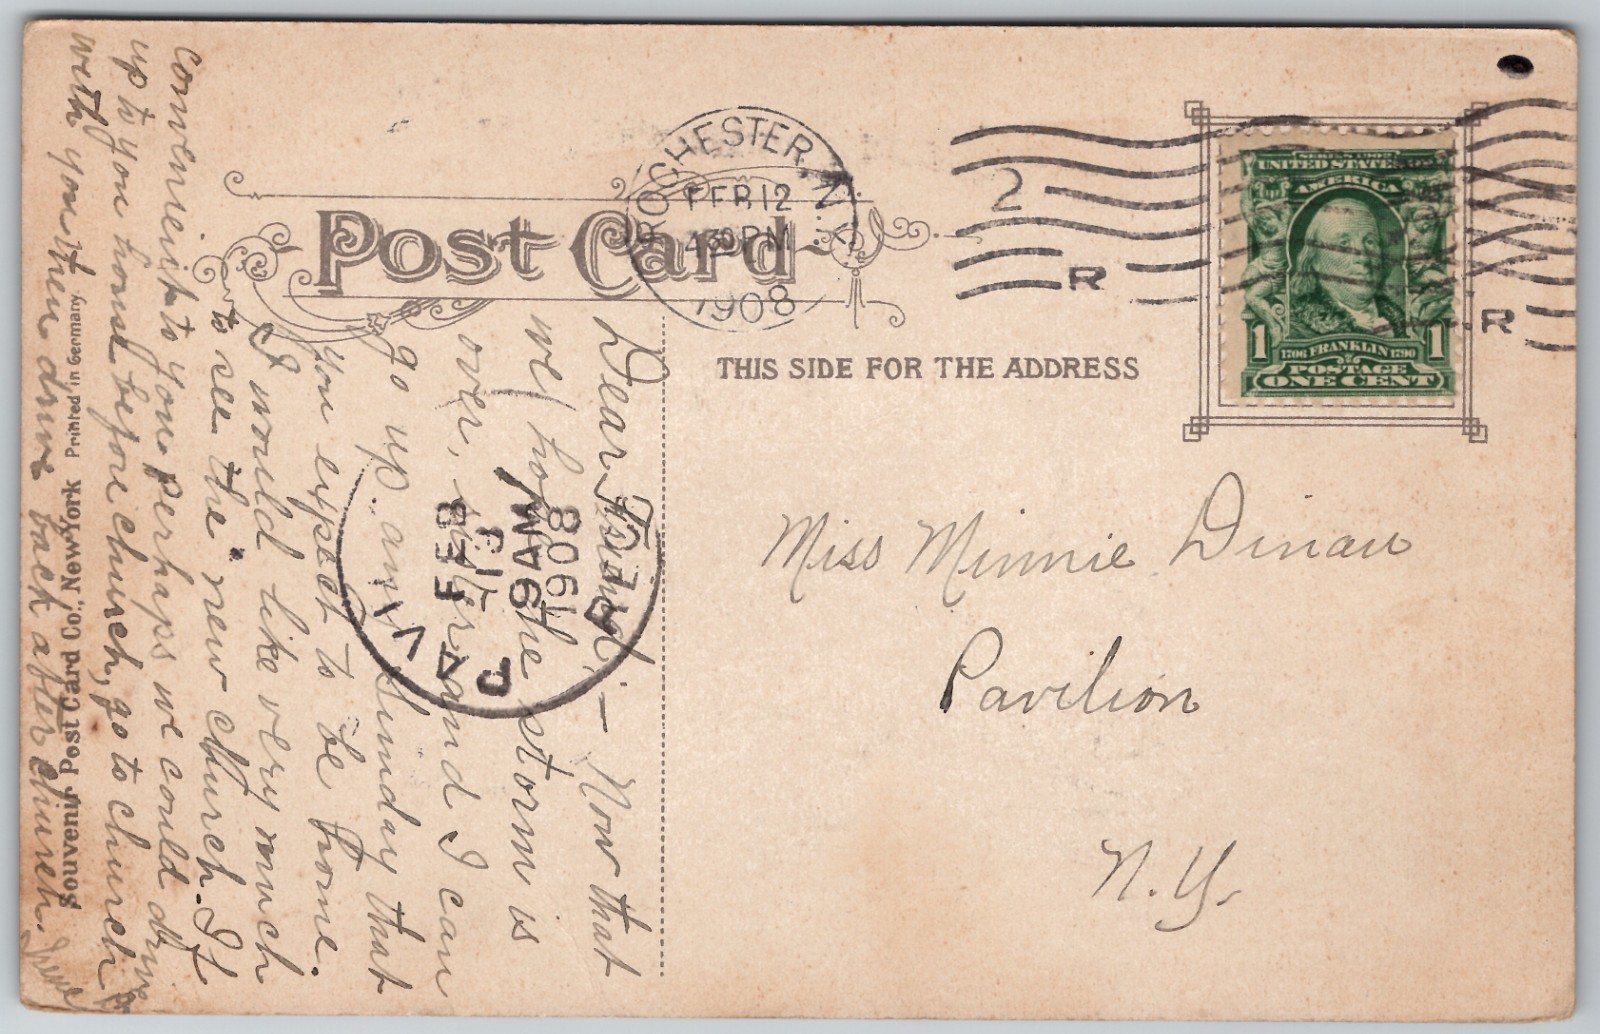 Post Card
ROCHESTER, N.Y.
FEB 12
430 PM
1908
2
R
R
SERIES 1902
UNITED STATES OF
AMERICA
1 1706 FRANKLIN 1790 1
POSTAGE
ONE CENT
THIS SIDE FOR THE ADDRESS
Miss Minnie Dinan
Pavilion
N.Y.
Dear Friend;— Now that
we (hope) the storm is
over, and I can
go up any Sunday that
you expect to be home.
I would like very much
to see the "new church. If
convenient to you perhaps we could drive
up to you house before church, go to church
with you then drive back after church.
PAVI
FEB
13
9AM
1908
Souvenir Post Card Co., New York Printed in Germany.